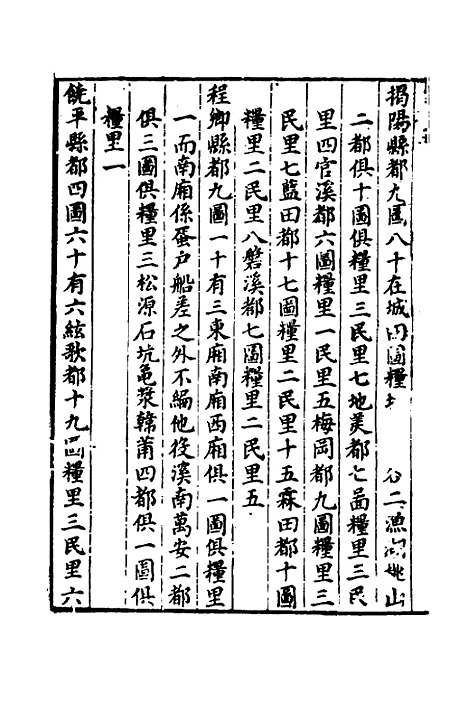 揭陽縣都九圖八十在城四圖糧 二漁湖桃山
二都俱十圖俱糧里三民里七地美都七圖糧里三民
里四官溪都六圖糧里一民里五梅岡都九圖糧里三
民里七藍田都十七圖糧里二民里十五霖田都十圖
糧里二民里八磐溪都七圖糧里二民里五
程鄉縣都九圖一十有三東廂南廂西廂俱一圖俱糧里
一而南廂係蜑户船差之外不編他役溪南萬安二都
俱三圖俱糧里三松源石坑龜漿韓莆四都俱一圖俱
糧里一
饒平縣都四圖六十有六絃歌都十九圖糧里三民里六